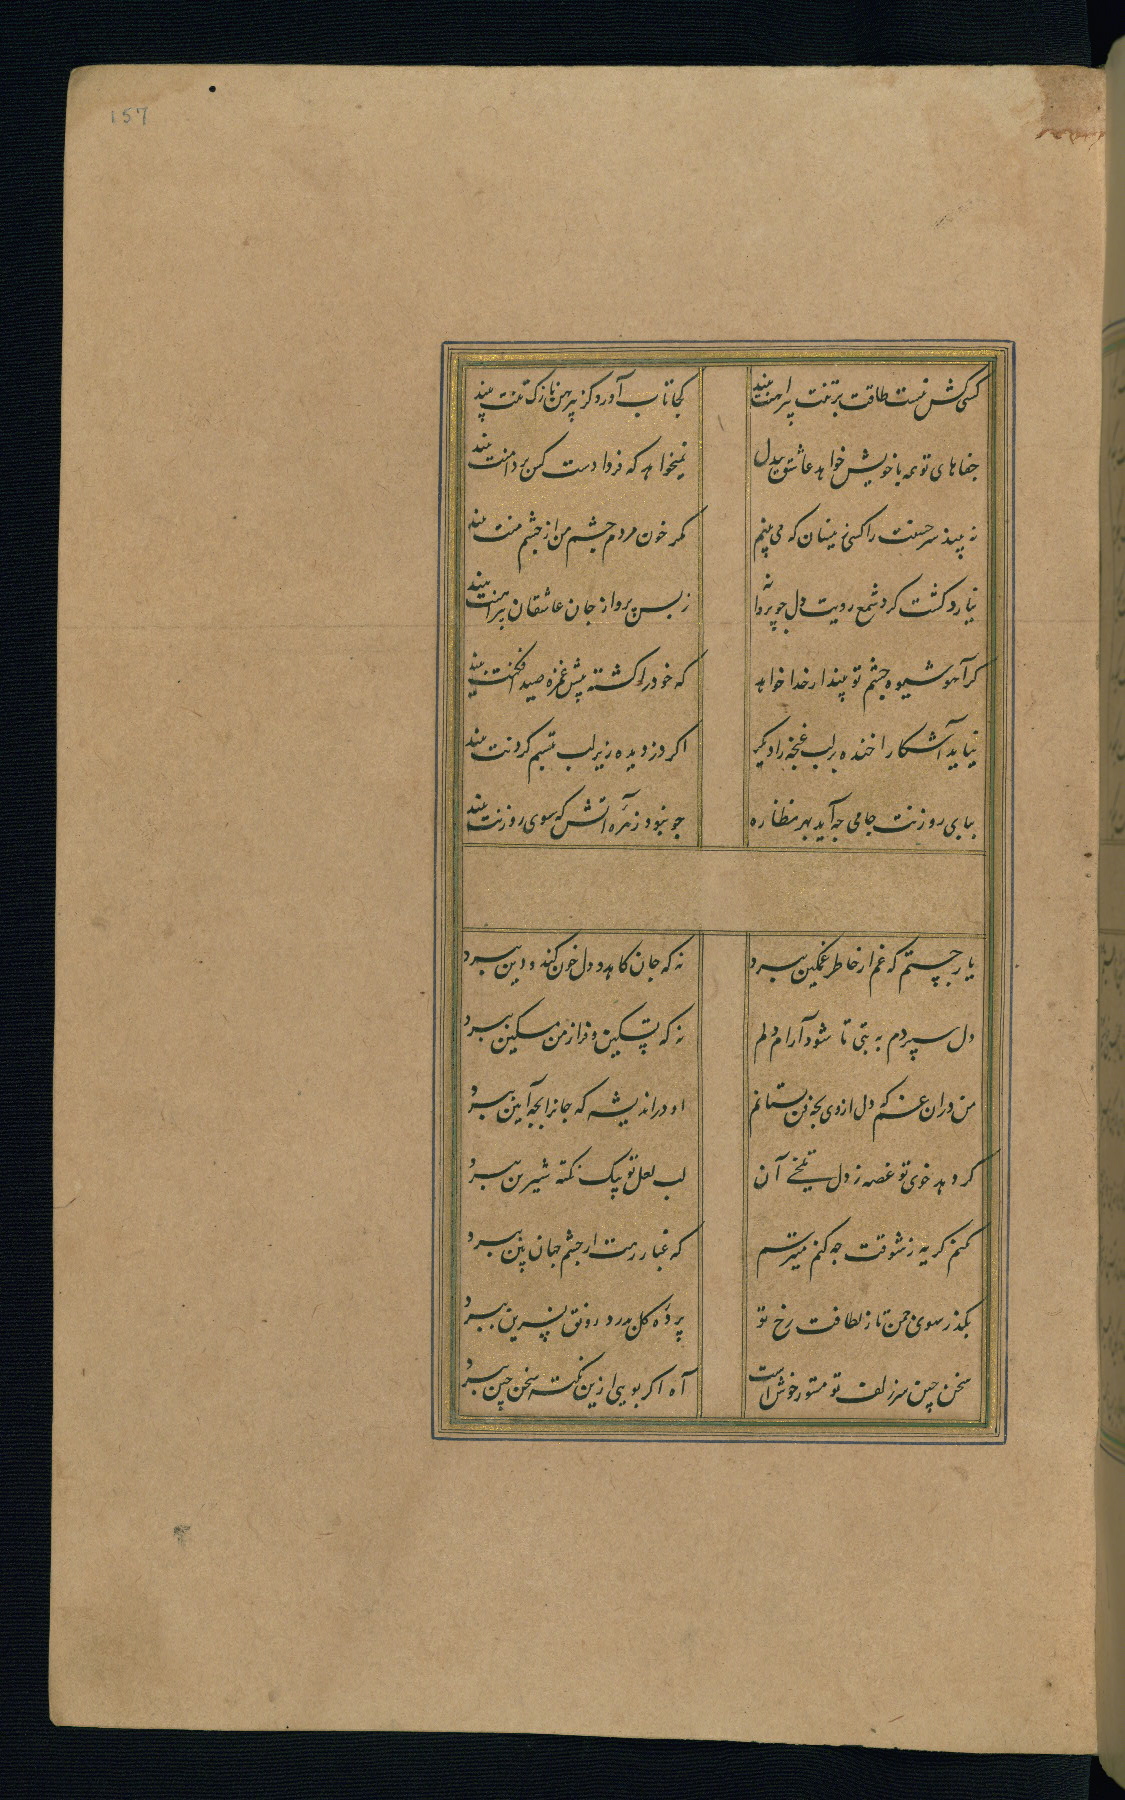 157
کسی کش نیست طاقت بر تنت پیراهنت بیند
کجا تاب آورد کز پیرهن نازک تنت بیند
جفاهای تو همه با خویش خواهد عاشق بیدل
نمیخواهد که فردا دست کس بر دامنت بیند
نه بیند سر حسنت را کسی زینسان که می بینم
مگر خون مردم چشم من از چشم منت بیند
نیارد گشت گرد شمع رویت دل چو پروانه
ز بس پرواز جان عاشقان پیرامنت بیند
گر آهو شیوه چشم تو پندارد خدا خواهد
که خود را کشته پیش غمزه صید افکنت بیند
نیاید آشکارا خنده بر لب غنچه را دیگر
اگر دزدیده زیر لب تبسم کردنت بیند
بپای روزنت جامی چه آید بهر نظاره
چو نبود زهره آتش که سوی روزنت بیند
یار جستم که غم از خاطر غمگین ببرد
نه که جان کاهد و دل خون کند و دین ببرد
دل سپردم به بتی تا شود آرام دلم
نه که تسکین و قرار از من مسکین ببرد
من در آن غم که دل از وی بچه فن بستانم
او در اندیشه که جانرا بچه آیین ببرد
گر دهد خوی تو غصه ز دل تلخی آن
لب لعل تو بیک نکته شیرین ببرد
نکنم گریه ز شوقت چه کنم میترسم
که غبار رهت از چشم جهان بین ببرد
بگذر سوی چمن تا ز لطافت رخ تو
پرده گل بدرد رونق نسرین ببرد
سخن چین سر زلف تو مستور خوش است
آه اگر بویی ازین نکته سخن چین ببرد